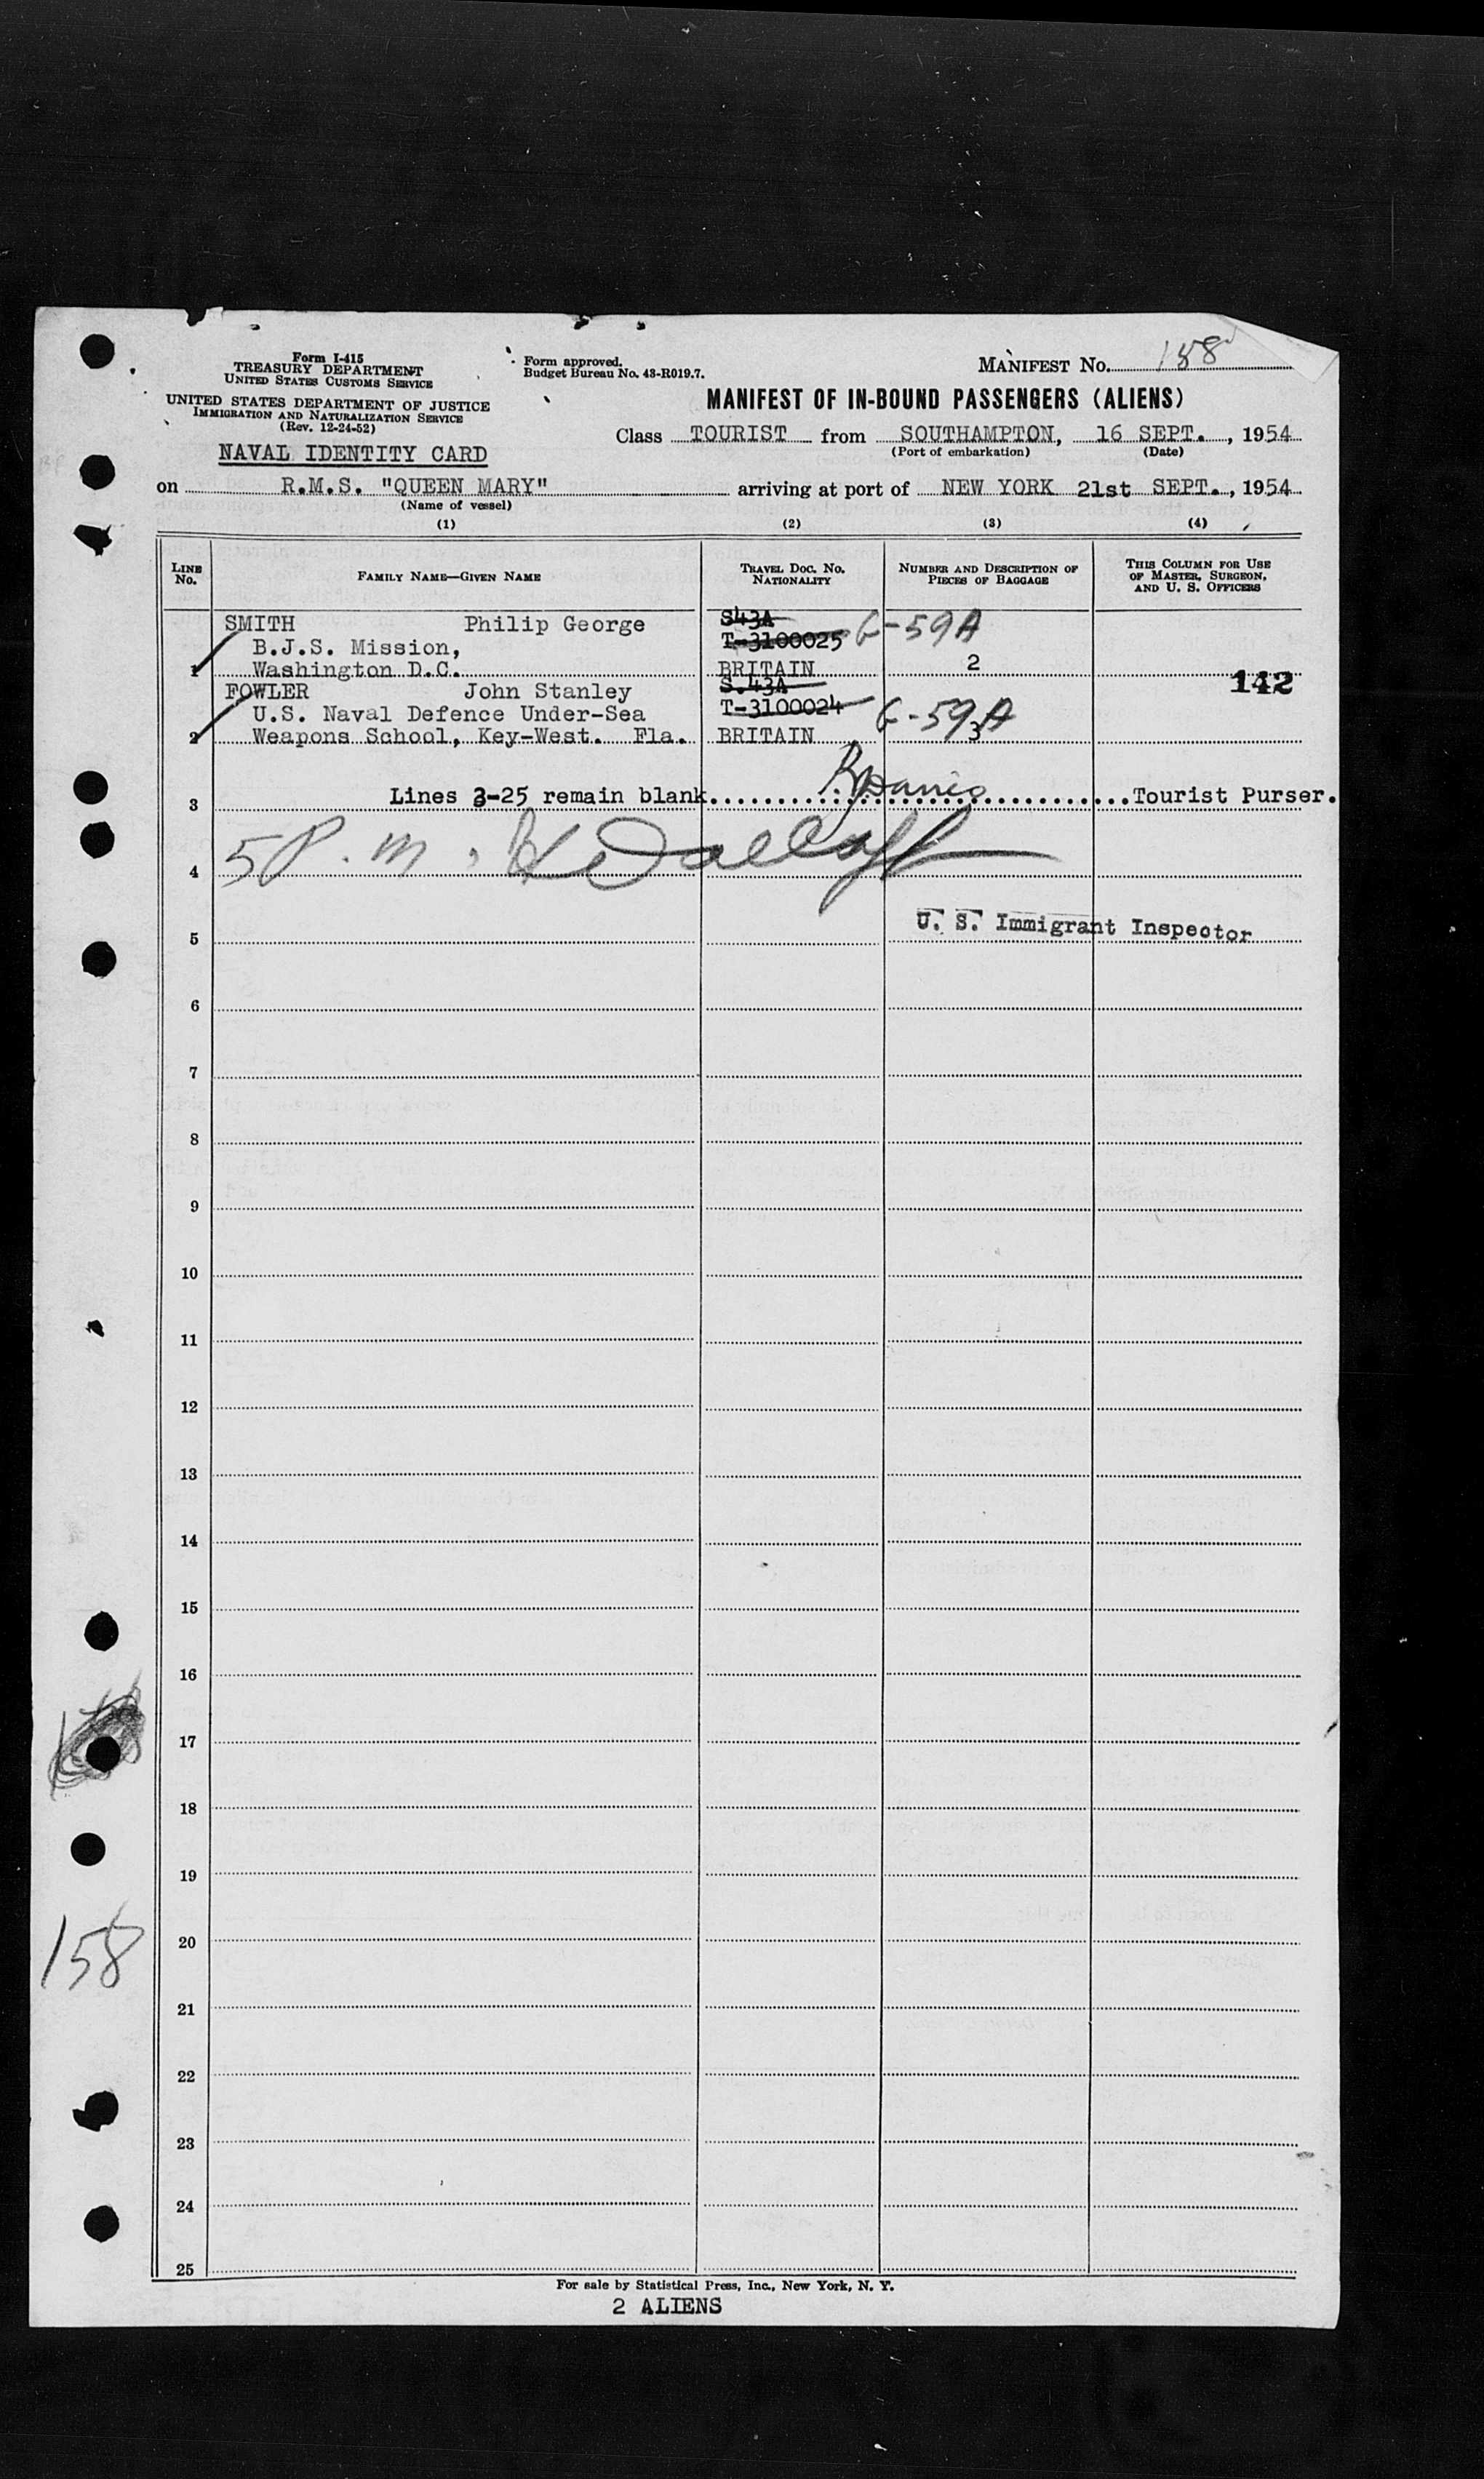 Form I-415
TREASURY DEPARTMENT
UNITED STATES CUSTOMS SERVICE
UNITED STATES DEPARTMENT OF JUSTICE
IMMIGRATION AND NATURALIZATION SERVICE
(Rev. 12-24-52)
NAVAL IDENTITY CARD
Form approved.
Budget Bureau No. 43-R019.7.
MANIFEST No. 158
MANIFEST OF IN-BOUND PASSENGERS (ALIENS)
Class TOURIST from SOUTHAMPTON, 16 SEPT., 1954
(Port of embarkation) (Date)
on R.M.S. "QUEEN MARY" arriving at port of NEW YORK 21st SEPT., 1954
(Name of vessel)
(1) (2) (3) (4)
LINE No. FAMILY NAME—GIVEN NAME TRAVEL DOC. NO. NATIONALITY NUMBER AND DESCRIPTION OF PIECES OF BAGGAGE THIS COLUMN FOR USE OF MASTER, SURGEON, AND U. S. OFFICERS
SMITH Philip George S43A
B.J.S. Mission, T-3100025 G-59A
1 Washington D.C. BRITAIN 2
FOWLER John Stanley S.43A 142
U.S. Naval Defence Under-Sea T-3100024 G-59A
2 Weapons School, Key-West. Fla. BRITAIN 3
3 Lines 3-25 remain blank. Tourist Purser.
4 5 P.m.
5 U. S. Immigrant Inspector
6
7
8
9
10
11
12
13
14
15
16
17
18
19
20
21
22
23
24
25
158
For sale by Statistical Press, Inc., New York, N. Y.
2 ALIENS